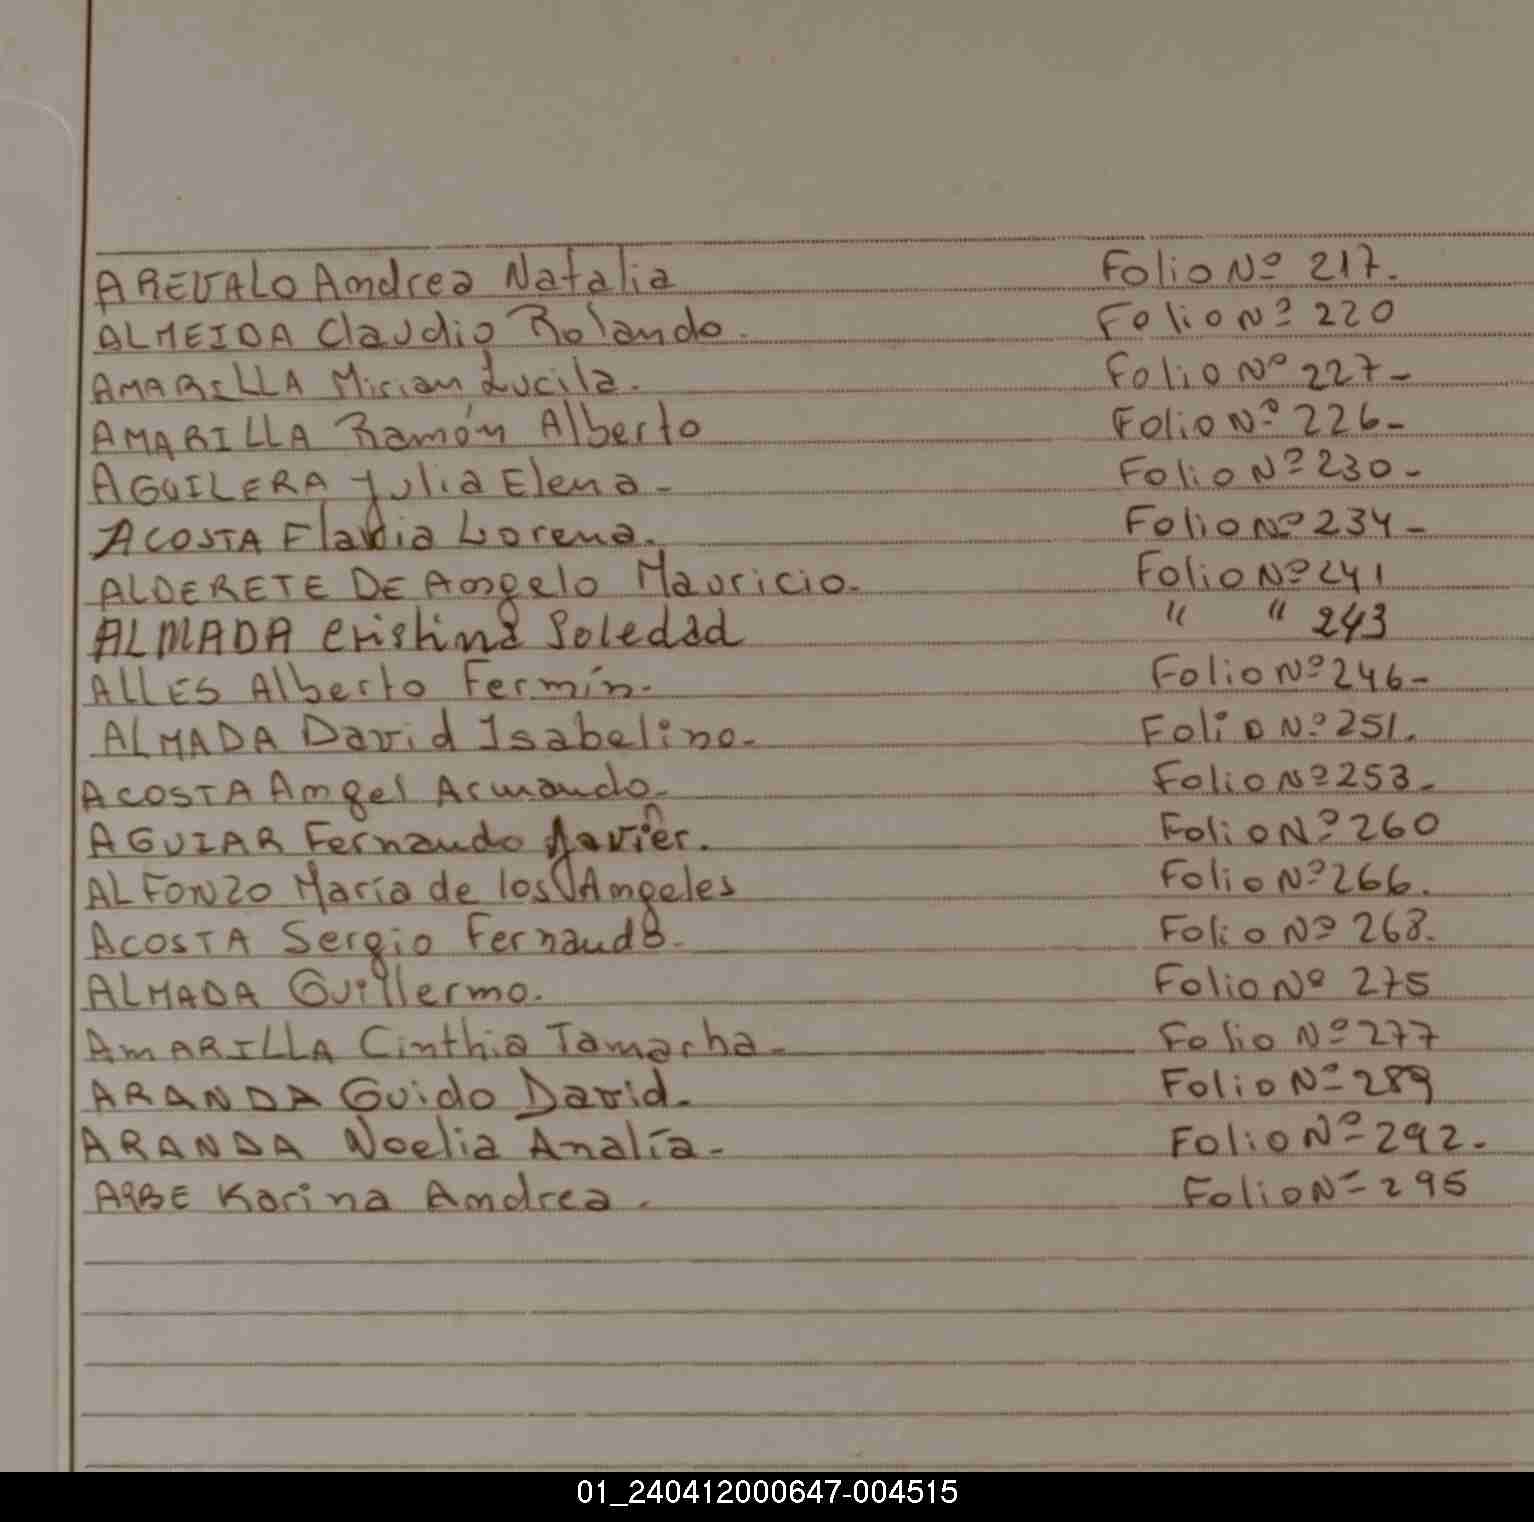 AREVALO Andrea Natalia Folio Nº 217.
ALMEIDA Claudio Rolando. Folio Nº 220
AMARILLA Mirian Lucila. Folio Nº 227-
AMARILLA Ramón Alberto Folio Nº 226-
AGUILERA Julia Elena- Folio Nº 230-
ACOSTA Flavia Lorena. Folio Nº 234-
ALDERETE DE Angelo Mauricio. Folio Nº 241
ALMADA Cristina Soledad " " 243
ALLES Alberto Fermín- Folio Nº 246-
ALMADA David Isabelino- Folio Nº 251.
ACOSTA Angel Armando- Folio Nº 253-
AGUIAR Fernando Javier. Folio Nº 260
ALFONZO María de los Angeles Folio Nº 266.
ACOSTA Sergio Fernando- Folio Nº 268.
ALMADA Guillermo. Folio Nº 275
AMARILLA Cinthia Tamarha- Folio Nº 277
ARANDA Guido David. Folio Nº 289
ARANDA Noelia Analía- Folio Nº 292.
ARBE Karina Andrea. Folio Nº 295
01_240412000647-004515